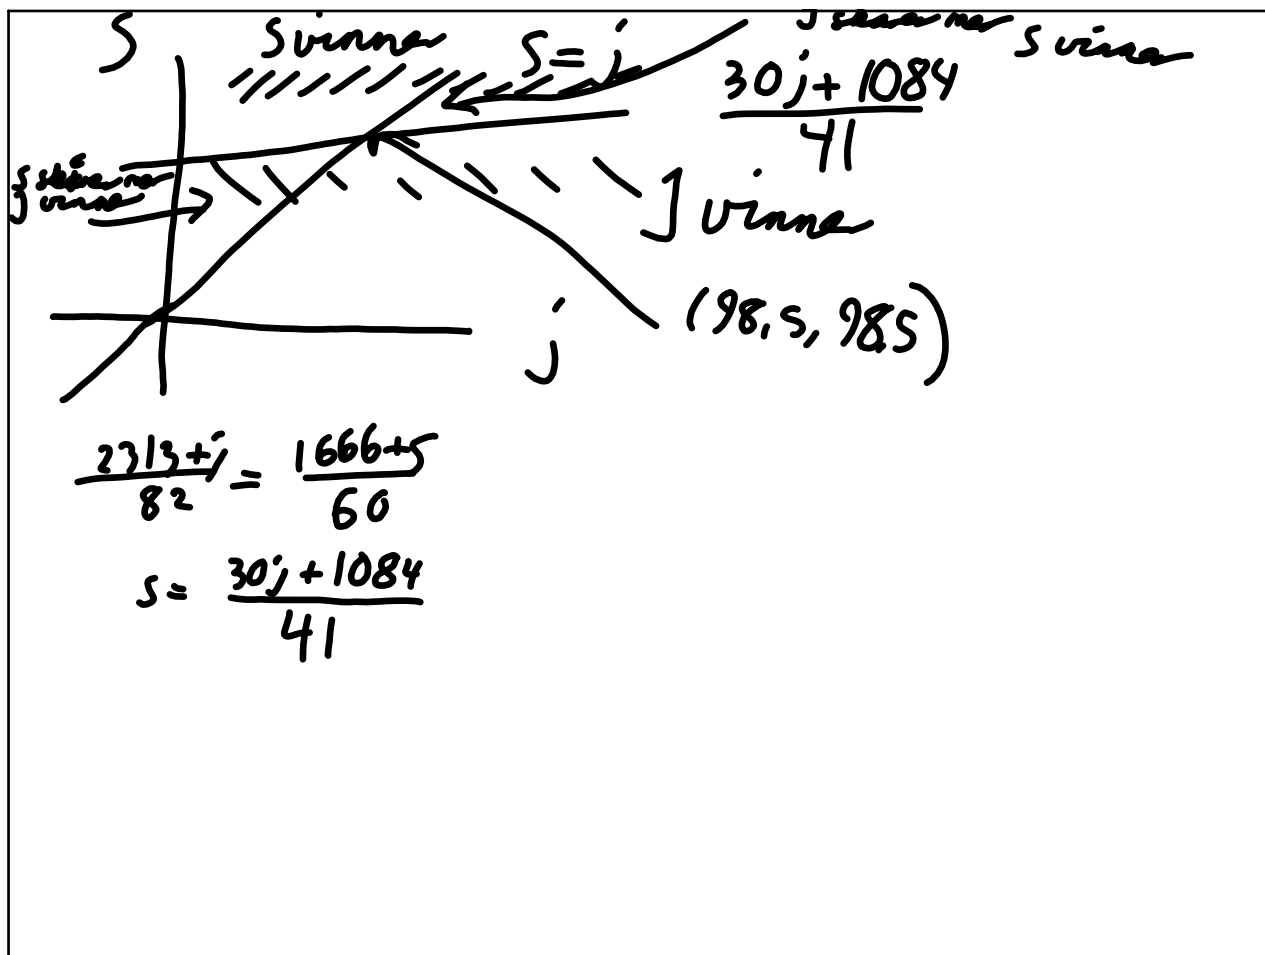 S
S vinner
S = j
S vinner
30j + 1084
41
S skriver mer
J vinner
J vinner
j
(98,5, 98,5)
2313 + j / 82 = 1666 + s / 60
s = 30j + 1084 / 41